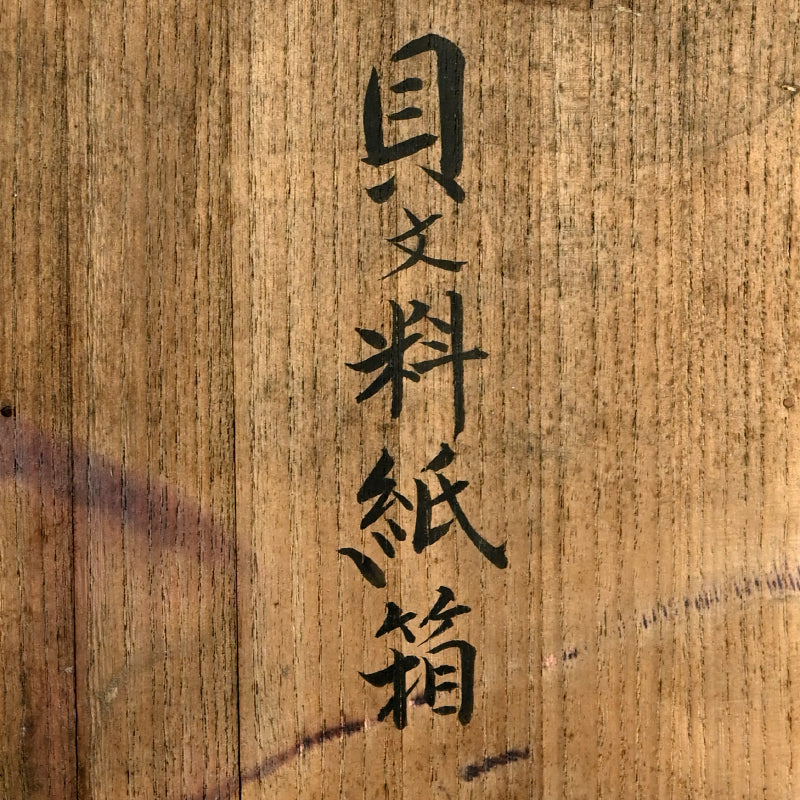 貝文料紙箱